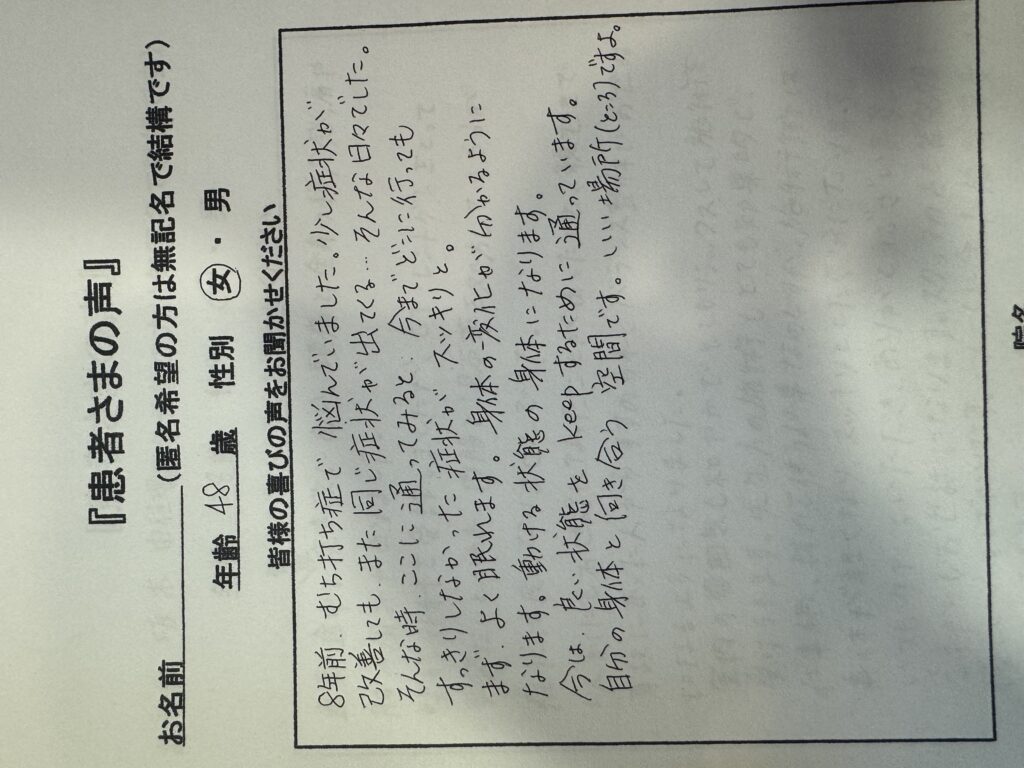 『患者さまの声』
お名前 (匿名希望の方は無記名で結構です)
年齢 48 歳 性別 女・男
皆様の喜びの声をお聞かせください
8年前、むち打ち症で悩んでいました。少し症状が
改善しても、また同じ症状が出てくる…そんな日々でした。
そんな時、ここに通ってみると、今までどこに行っても
すっきりしなかった症状がスッキリと。
まず、よく眠れます。身体の変化が分かるように
なります。動ける状態の身体になります。
今は、良い状態をkeepするために通っています。
自分の身体と向き合う空間です。いい場所(ところ)ですよ。
院名